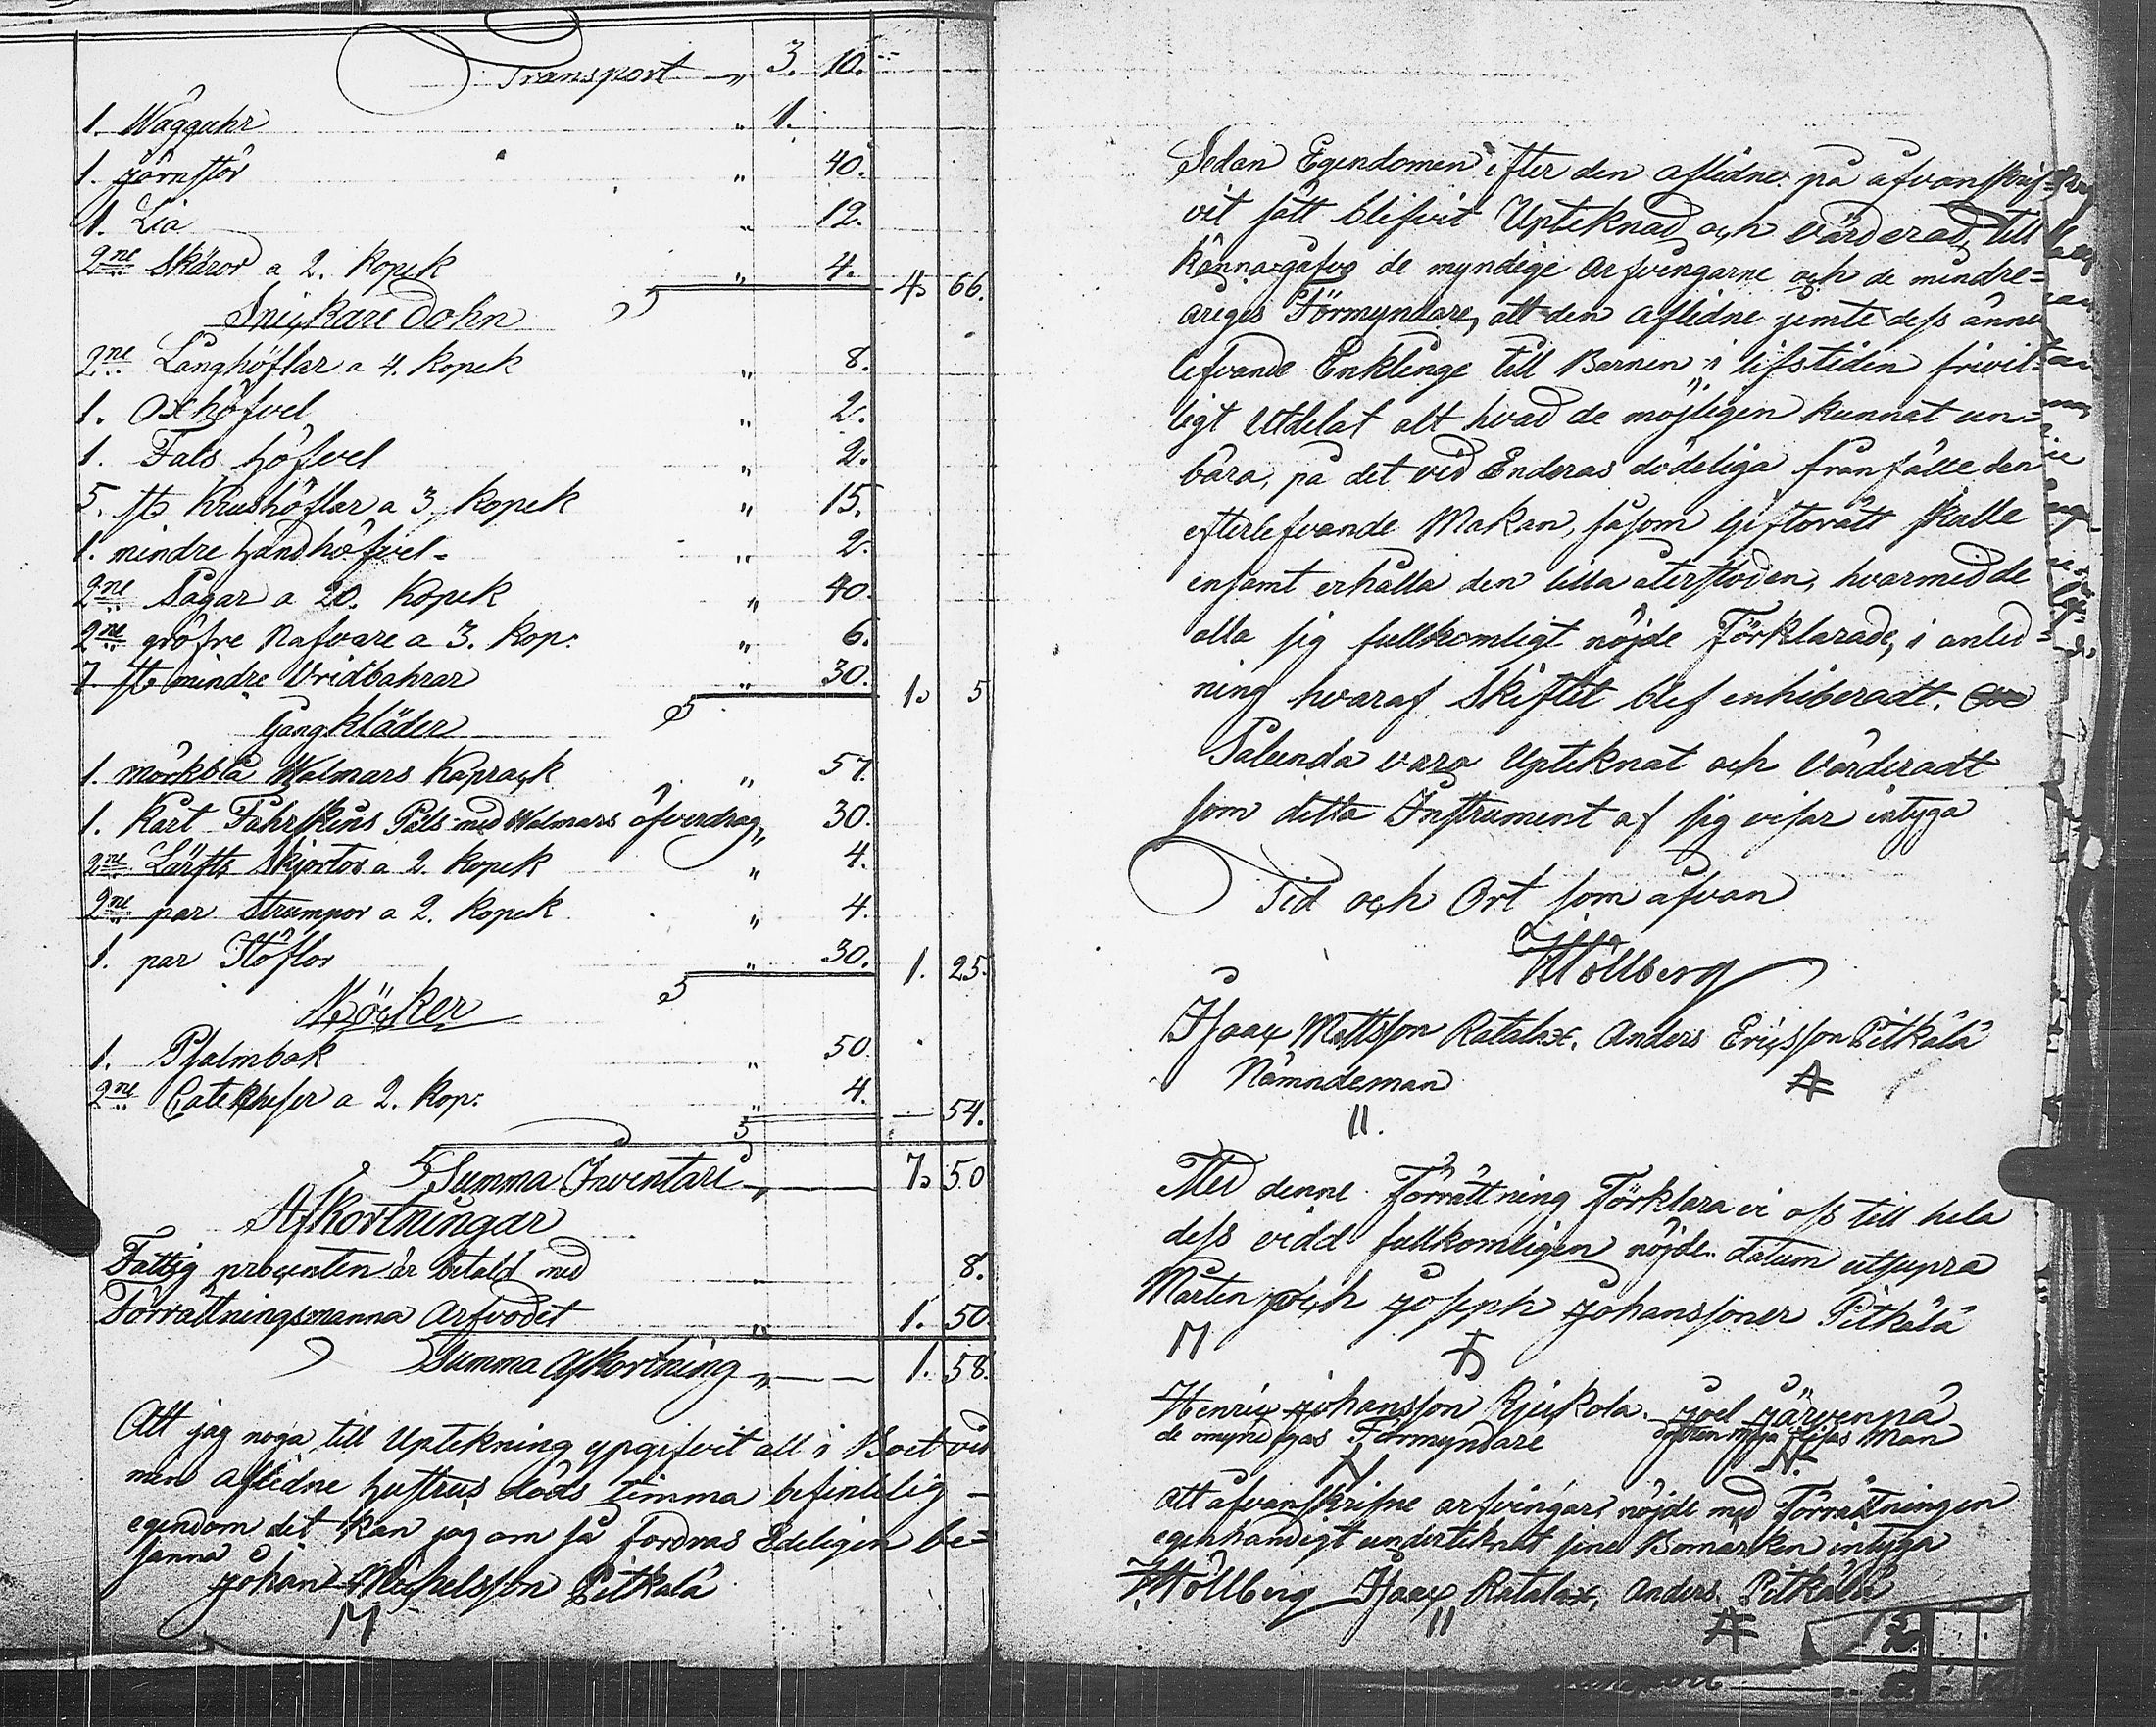 Transport „ 3. 10.
1. Wägguhr „ 1.
1. Järnstör „ 40.
1. Lia „ 12.
2ne Skäror a 2. Kopek „ 4. 4, 66.
Snickare dohn
2ne Långhöflar a 4. Kopek „ 8.
1. Oxhöfvel „ 2.
1. Fals höfvel „ 2.
5. st. Krushöflar a 3, Kopek „ 15.
1. mindre handhöfvel- „ 2.
2ne Sågar a 20. Kopek „ 40.
2ne gröfre Nafvare a 3. Kop: „ 6.
7 st. mindre Vridbahrar „ 30. 1, 5
Gångkläder
1. mörkblå Walmars Kaprock „ 57.
1. Kart Fahrskins Päls med Walmars öfverdrag „ 30.
2ne Lärfts Skjortor a 2. Kopek „ 4.
2ne par Strumpor a 2. Kopek „ 4.
1. par Stöflor „ 30. 1. 25.
Böcker
1. Psalmbok „ 50.
2ne Catekheser a 2. Kop: „ 4. — 54.
Summa Inventarie „ 7, 50
Afkortningar
Fattig procenten är betald med „ 8.
Förrättningsmanna Arfvodet „ 1. 50.
Summa Afkortning „ 1. 58.
Att jag noga till Uptekning upgifvit all i Boet vid
min aflidne hustrus döds timma befintelig
egendom det kan jag om så fordras Edeligen be=
sanna
Johan Michelsson Pitkälä
M
Sedan Egendomen efter den aflidne på åfvanskrif=
vit sätt blifvit Upteknad och värderad, till
känna gafvs de myndige Arfvingarne och de mindre=
åriges Förmyndare, att den aflidne jemte dess ännu
lefvande Enkling till Barnen i lifstiden frivil=
ligt utdelat alt hvad de möjligen kunnat um=
bära, på det vid Enderas dödeliga frånfälle den
efterlefvande Makan, såsom Giftorätt skulle
ensamt erhålla den lilla återstoden, hvarmed de
alla sig fullkomligt nöjde Förklarade, i anled=
ning hvaraf Skiftet blef inhiberadt.
Sålunda vara Upteknat och Värderadt
som detta Instrument af sig visar intyga
Tid och Ort som åfvan
Möllberg
Isaac Mattsson Ratalax. Anders Ericsson Pitkälä
Nämndeman A
II.
Med denne Förrättning Förklara vi oss till hela
dess vidd fullkomligen nöjde. Datum utsupra
Mårten och Joseph Johanssoner Pitkälä
M
Henric Johansson Kjukola. Joel Järvenpä
de omyndigas Förmyndare dottren Maja Lisas Man
N.
Att åfvanskrifne arfvingar nöjde med Förrättningen
egenhändigt underteknat sine Bomärken intyga
Möllberg Isaac Ratalax, Anders Pitkälä
II A